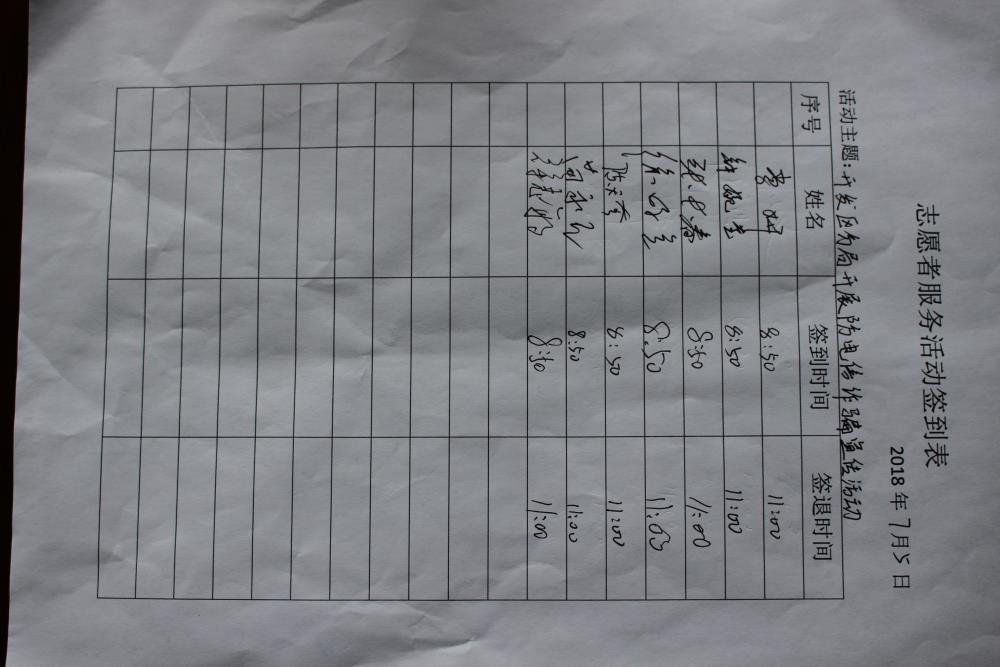 志愿者服务活动签到表
2018年7月5日
活动主题：开发区分局开展防电信诈骗宣传活动
序号 姓名 签到时间 签退时间
8:50 11:00
8:50 11:00
8:50 11:00
8:50 11:03
陈天奎 8:50 11:00
8:50 11:00
8:50 11:00